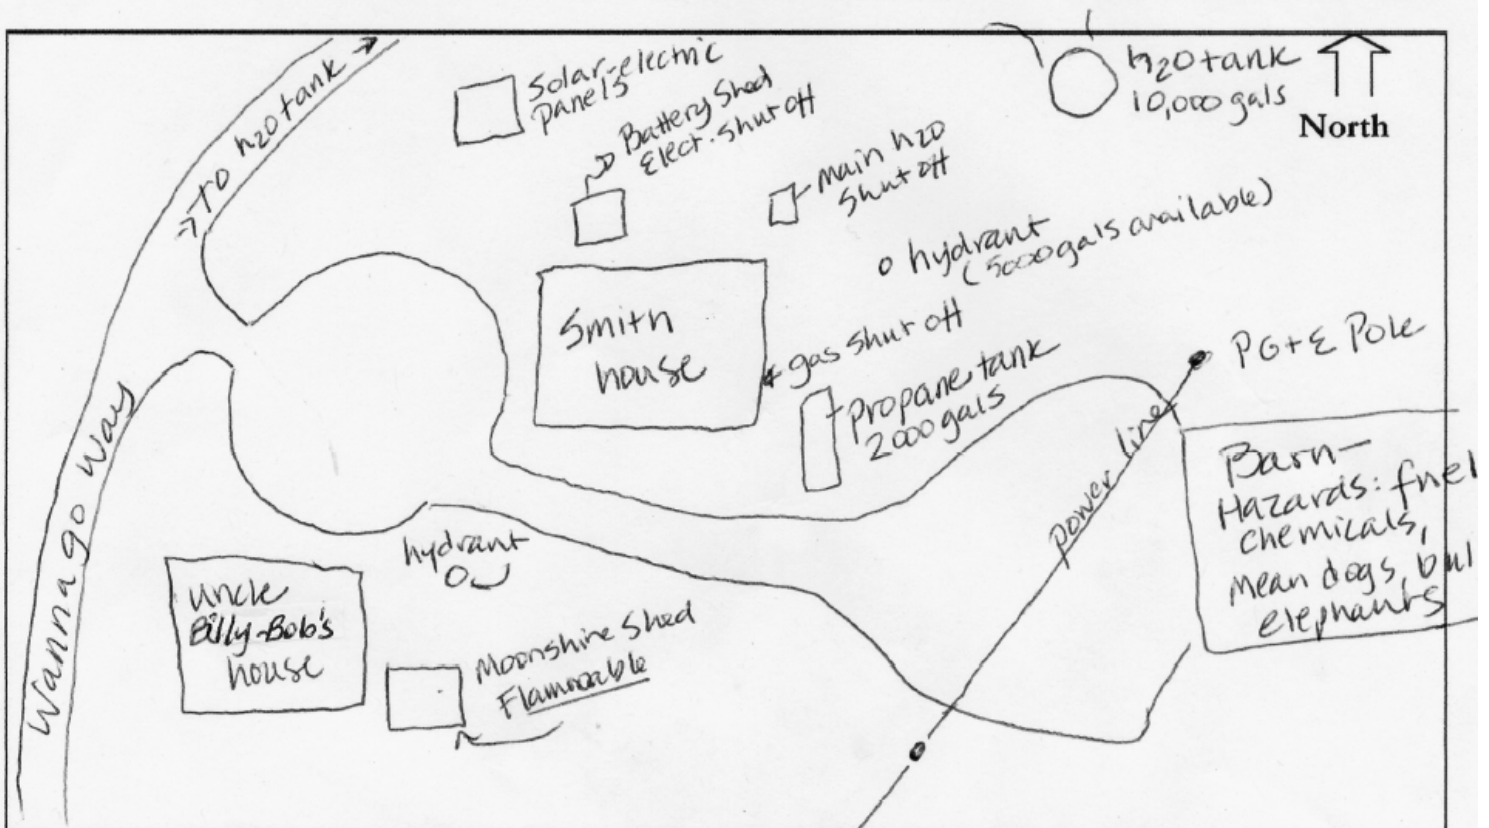 → To h20 tank →
Solar-electric
panels
Battery Shed
Elect. Shut off
main h20
Shut off
h20 tank
10,000 gals
North
o hydrant
(5000 gals available)
Smith
house
gas shut off
Propane tank
2000 gals
PG+E Pole
power line
Barn-
Hazards: fuel
chemicals,
mean dogs, bul
elephants
Wanna go way
hydrant
uncle
Billy-Bob's
house
Moonshine Shed
Flammable